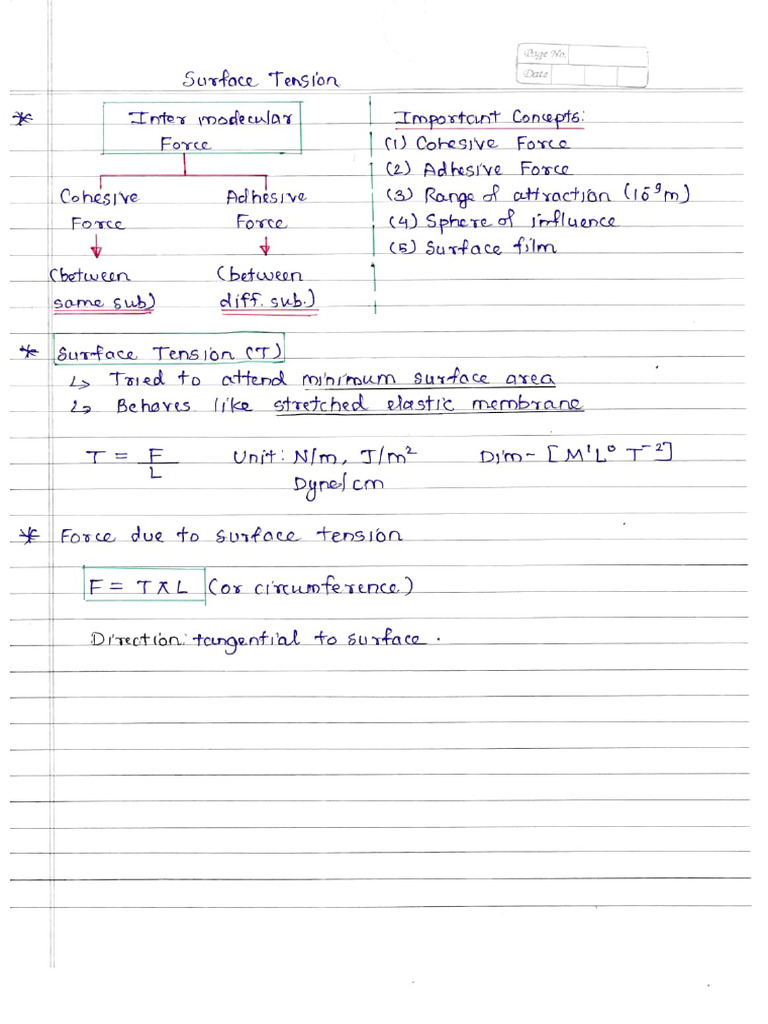 Page No.
Date
Surface Tension
* Inter modecular
Force
Cohesive Adhesive
Force Force
(between (between
same sub) diff. sub.)
Important Concepts:
(1) Cohesive Force
(2) Adhesive Force
(3) Range of attraction (10⁻⁹m)
(4) Sphere of influence
(5) Surface film
* Surface Tension (T)
↳ Tried to attend minimum surface area
↳ Behaves like stretched elastic membrane
T = F/L Unit: N/m, J/m² Dim- [M¹L⁰ T⁻²]
Dyne/cm
* Force due to surface tension
F = T x L (or circumference)
Direction: tangential to surface.